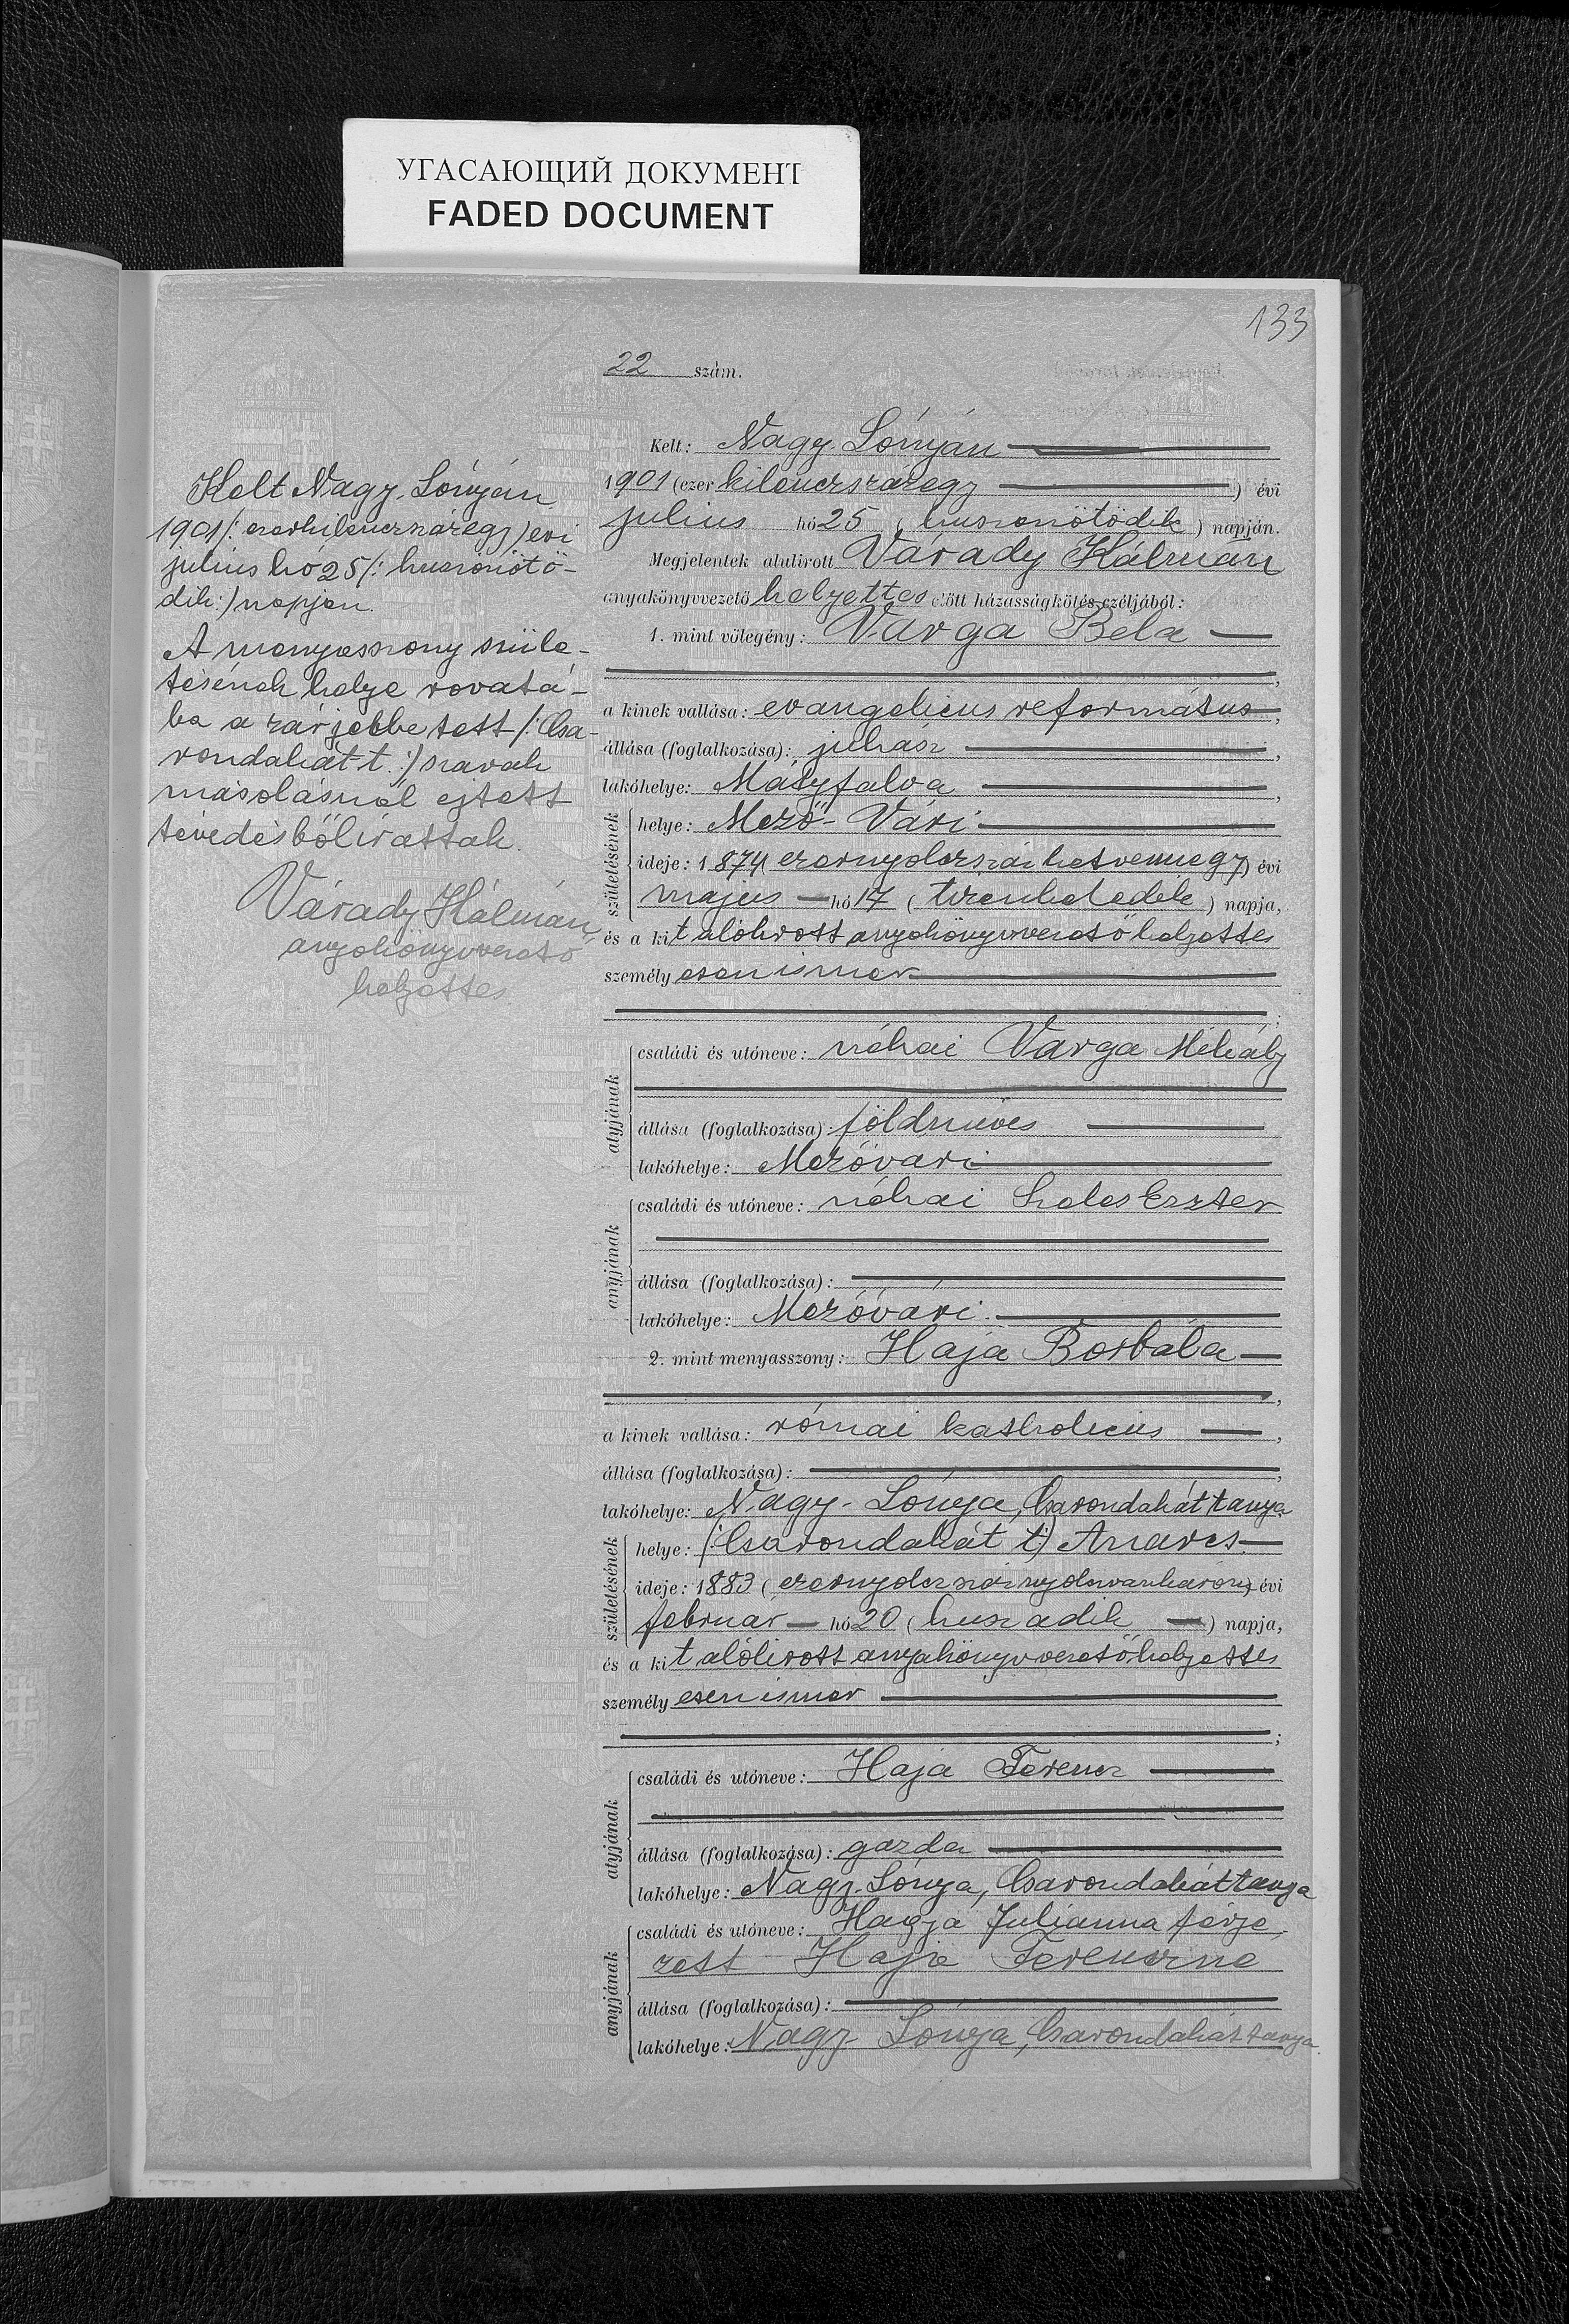 УГАСАЮЩИЙ ДОКУМЕНТ
FADED DOCUMENT
133
22 szám.
Kelt: Nagy-Lónyán
1901 (ezer kilenczszázegy) évi
julius hó 25 (huszonötödik) napján.
Megjelentek alulirott Várady Kálmán
anyakönyvvezető helyettes előtt házasságkötés czéljából:
1. mint völegény: Varga Béla
a kinek vallása: evangelicus református,
állása (foglalkozása): juhász,
lakóhelye: Mátyfalva,
születésének
helye: Mező-Vári
ideje: 1874 (ezernyolczszázhetvennégy) évi
majus hó 17 (tizenhetedik) napja,
és a kit alólirott anyakönyvvezető helyettes
személyesen ismer
;
atyjának
családi és utóneve: néhai Varga Mihály
állása (foglalkozása): földmüves
lakóhelye: Mezővári
anyjának
családi és utóneve: néhai Eszter
állása (foglalkozása):
lakóhelye: Mezővári
2. mint menyasszony: Haja Borbála
,
a kinek vallása: római katholicus,
állása (foglalkozása):,
lakóhelye: Nagy-Lónya, Csarondaháttanya
születésének
helye: (:Csarondahát t:) Anarcs
ideje: 1883 (ezernyolczszáznyolczvanhárom) évi
február hó 20 (huszadik) napja,
és a kit alólirott anyakönyvvezető helyettes
személyesen ismer
;
atyjának
családi és utóneve: Haja Ferencz
állása (foglalkozása): gazda
lakóhelye: Nagy-Lónya, Csarondaháttanya
anyjának
családi és utóneve: Hagja Julianna férje-
zett Haja Ferenczné
állása (foglalkozása):
lakóhelye: Nagy-Lónya, Csarondaháttanya.
Kelt Nagy-Lónyán
1901 /: ezerkilenczszázegy) évi
julius hó 25 /: huszonötö-
dik:/ napján.
A menyasszony szüle-
tésének helye rovatá-
ba a zárjelbe tett /: Csa-
rondahát t.:/ szavak
másolásnál ejtett
tévedésből irattak.
Várady Kálmán
anyakönyvvezető
helyettes